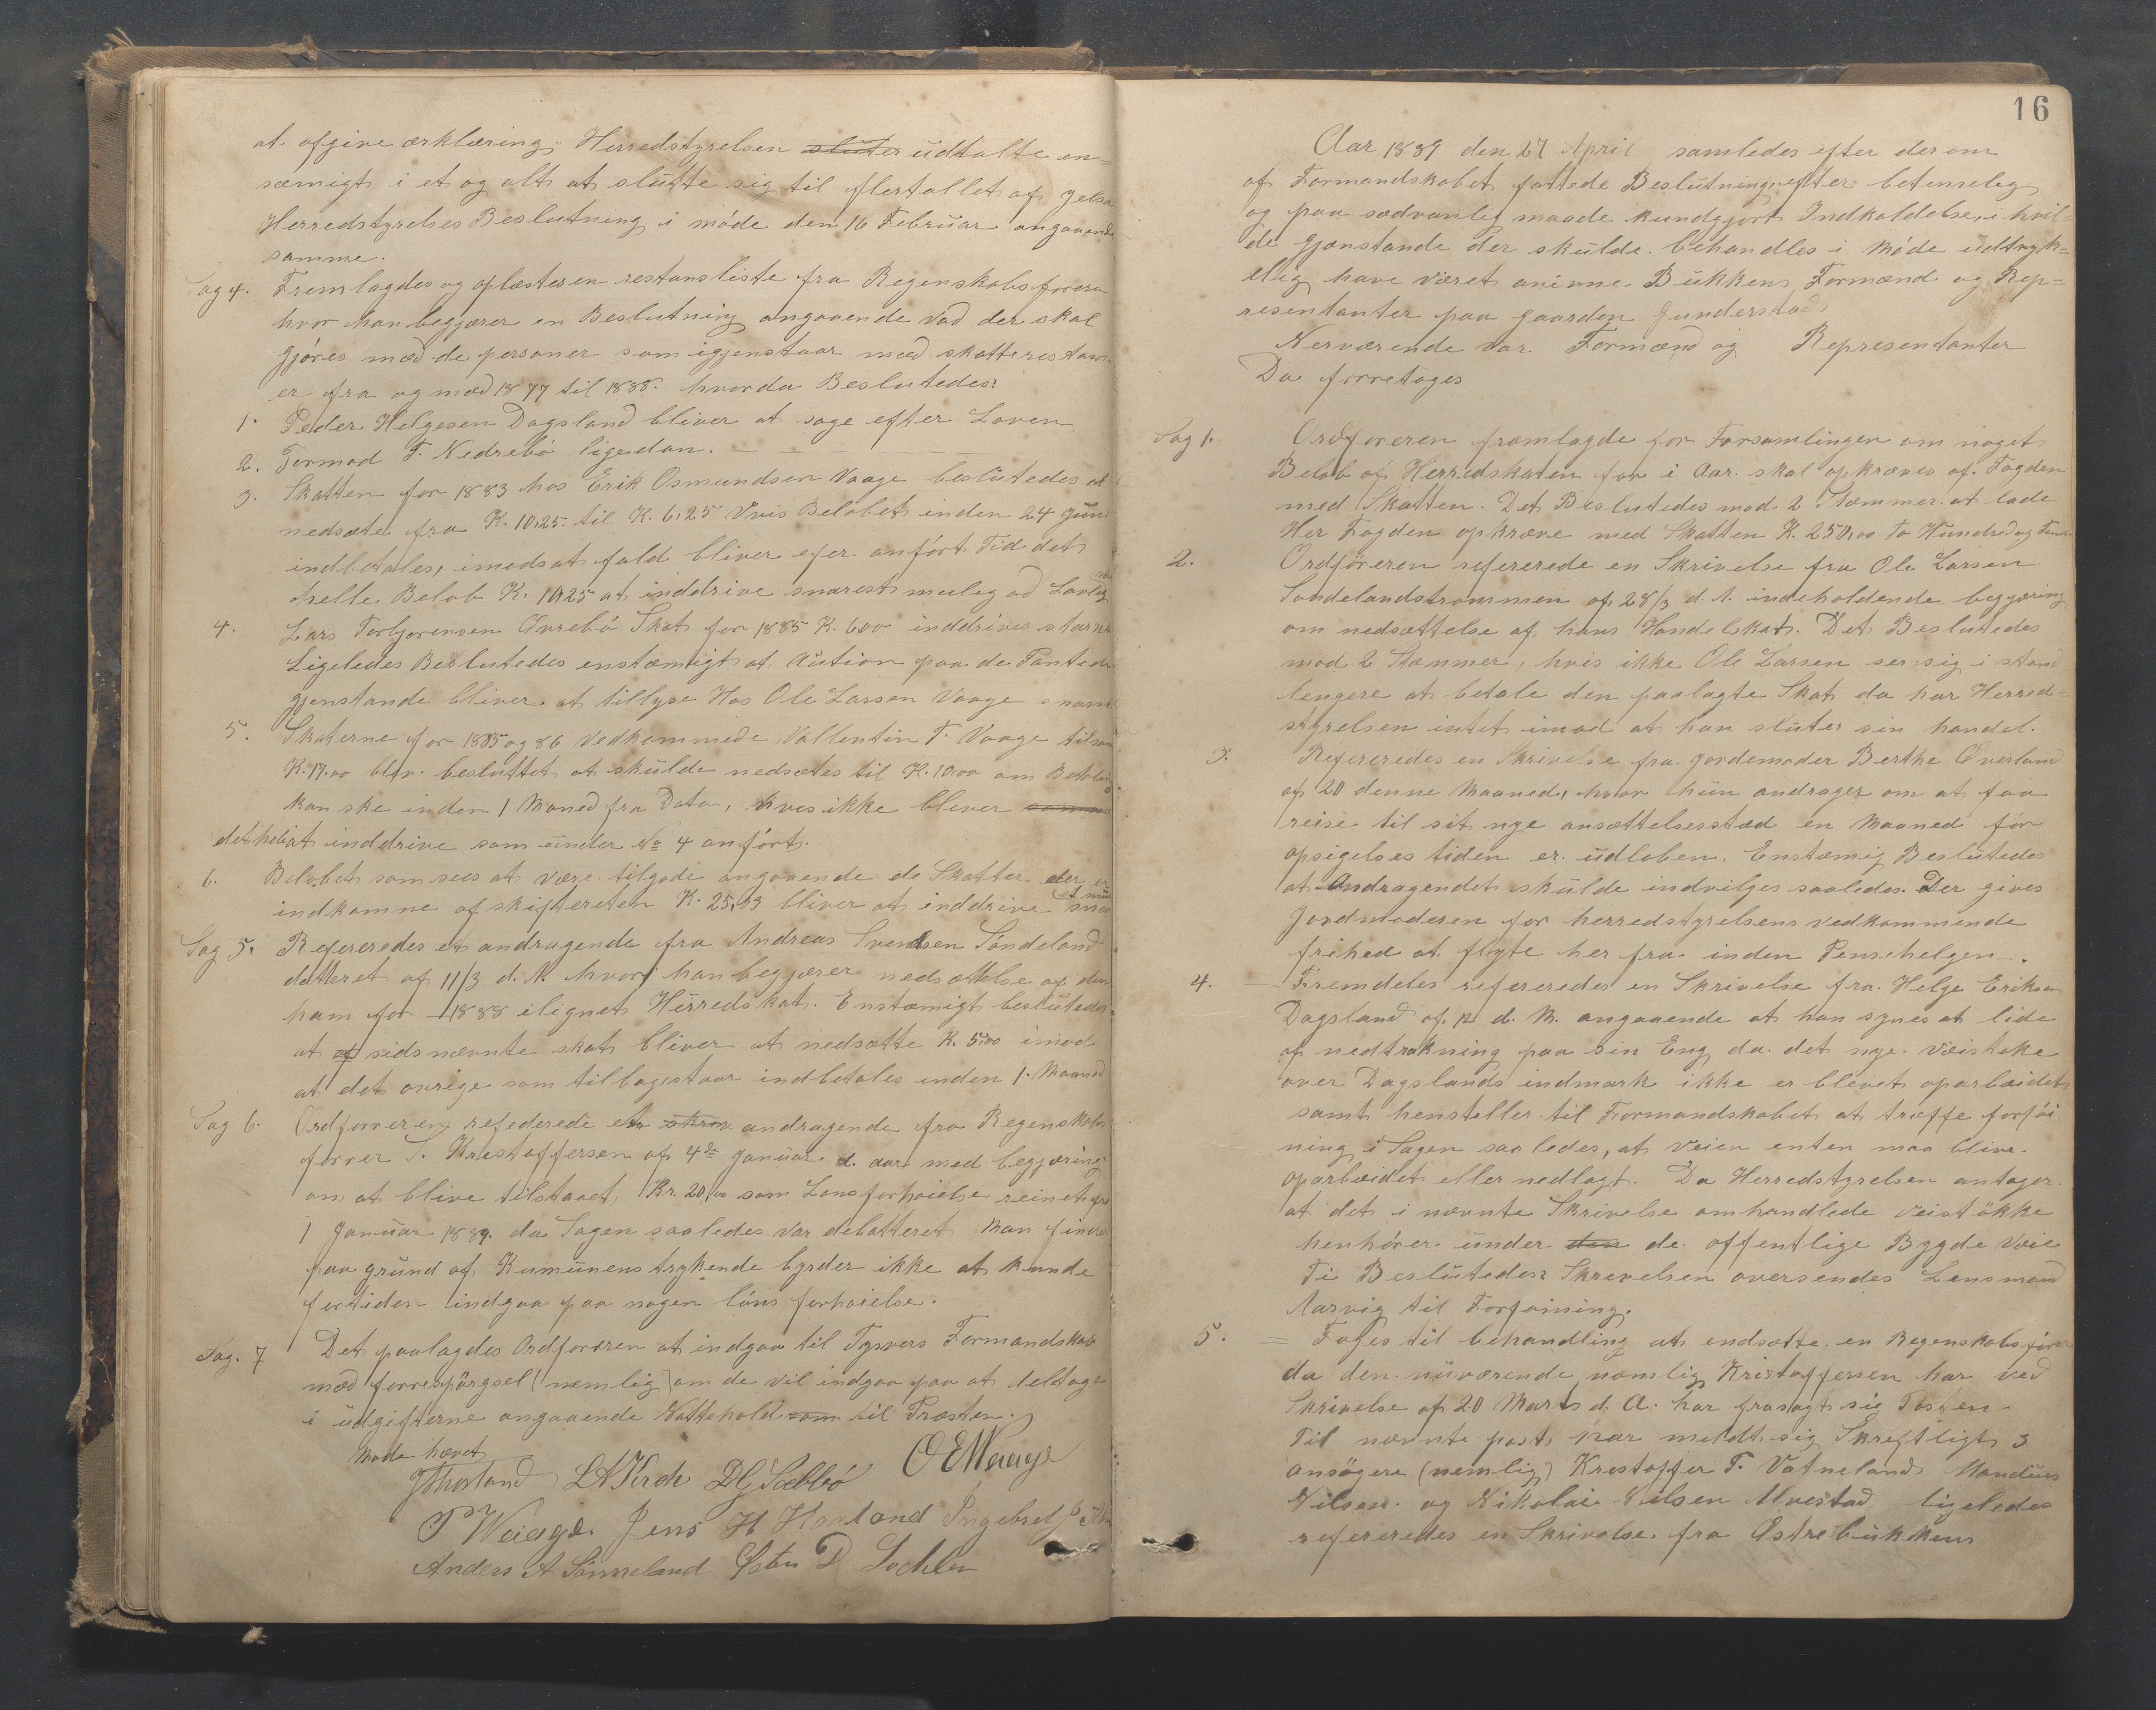 at afgive ærklæring; Herredstyrelsen sluter udtalte en=
sæmigt i et og alt at slutte sig til flertallet af Jelsa
Herredstyrelses Beslutning i móde den 16 Februar angaaende
samme.
Sag 4. Fremlagdes og oplæstes en restansliste fra Regenskabsforera
hvor han begjærer en Beslutning angaaende Vad der skal
gjóres mæd de personer som igjenstaar mæd skatterestan
er fra og mæd 1877 til 1888. hvorda Beslutedes:
1. Peder Helgesen Dagsland bliver at søge efter Loven
2. Tormod T. Nedrebó ligedan.
3. Skatten for 1883 hos Erik Osmundsen Vaage beslutedes at
nedsæte fra K. 10,25. til K. 6,25 Vvis Belobet inden 24 Juni
indbetales, imodsat fald bliver efer anfórt Tid det
helle Belob K. 10,25 at inddrive snarest mulig ad Lovlig
4. Lars Torbjorensen Øvrebó Skat for 1885 K. 6,00 inddrives
Ligeledes Beslutedes enstæmigt at Aution paa de Pantede
gjenstande bliver at tillyse Hos Ole Larsen Vaage snar
5. Skaterne for 1885 og 86 Vedkommede Vallentin T. Vaage
K. 17.00 blev besluttet at skulde nedsætes til K. 10,00 om Betaling
kan ske inden 1 Maned fra Dato, hves ikke blever
det heligt inddrive som under № 4 anfórt.
6. Belobet som sees at være tilgode angaaende de Skatter der er
indkomne af skiftereten K. 25,03 bliver at inddrive
Sag 5. Refereredes et andragende fra Andreas Svendsen Sóndeland
datteret af 11/3 d. A. hvori han begjærer nedsættelse af den
ham for 1888 ilignet Herredskat. Enstæmigt beslutedes
at af sidsnævnte skat bliver at nedsætte K. 5,00 imod
at det ovrige som tilbagestaar indbetales inden 1. Maaned
Sag 6. Ordforreren refederede et skriv. andragende fra Regenskabs
forrer T. Kristoffersen af 4de Januar d. aar med begjæring
om at blive tilstaaet Kr. 20,00 som Lonsforhoielse reinet fra
1 Januar 1889. da Sagen saaledes var debatteret Man finder
paa grund af Kumunens trykende byrder ikke at kunde
fortiden indgaa paa nogen lóns forhoielse.
Sag. 7 Det paalagdes Ordforreren at indgaa til Tysvers Formandskab
mæd forrespórgsel (nemlig) om de vil indgaa paa at deltage
i udgifterne angaaende Nattehold som til Præsten.
Móde hævet
LAKirch OEWaage
P Weaage. Jens H Haaland Ingebret
Anders A Sónneland
16
Aar 1889 den 27 April samledes efter derom
af Formandskabet fattede Beslutning efter betemeleg
og paa sædvanlig maade kundgjort Indkaldelse, i hvil=
de Gjenstande der skulde behandles i Móde udtryk=
kelig have været anivne Bukkens Formænd og Rep=
resentanter paa gaarden Gunderstad
Nerværende var. Formænd og Representanter
Da forretoges
Sag 1. Ordforeren framlagde for Forsamlingen om noget
Belob af Herredskaten for i Aar skal opkræves af Fogden
med Skatten. Det Beslutedes mod 2 Stæmmer at lade
Her Fogden opkræve med Skatten K. 250,00 To Hundred og Femti
2. Ordfóreren refererede en Skrivelse fra Ole Larsen
Sandelandstrommen af 28/3 d. A. indeholdende begjæring
om nedsættelse af hans Handelskat. Det Beslutedes
mod 2 Stæmmer, hvis ikke Ole Larsen ser sig i stand
lengere at betale den paalagte Skat da har Herred=
styrelsen intet imod at han sluter sin handel.
3. Refereredes en Skrivelse fra gordemoder Berthe Øverland
af 20 denne Maaned, hvor hun andrager om at faa
reise til sit nye ansættelsesstæd en Maaned fór
opsigelses tiden er udloben. Enstæmig Beslutedes
at Andragendet skulde indvilges saaledes. Der gives
Jordmoderen for herredstyrelsens vedkommende
frihed at flyte her fra inden Penschelgen.
4. Fremdeles refereredes en Skrivelse fra Helge Eriksen
Dagsland af 12 d. M. angaaende at han synes at lide
af nedtrakning paa sin Eng da det nye Væistøke
over Dagslands indmark ikke er blevet oparbæidet
samt henstiller til Formandskabet at træffe forfói
ning i Sagen saaledes, at Veien enten maa blive
oparbæidet eller nedlagt. Da Herredstyrelsen antager
at det i nævnte Skrivelse omhandlede Veistókke
henhórer under den de offentlige Bygde Veie
Ti Beslutedes: Skrevelsen oversendes Lensmand
Aarvig til Forfoining.
5. = Toges til behandling at endsætte en Regenskabsfórer
da den nuværende nemlig Kristoffersen har ved
Skrivelse af 20 Marts d. A. har frasagt sig Posten
Til nævnte post har meldt sig Skreftligt 3
ansógere (nemlig) Krestoffer T. Vatneland Mandius
Nilsen og Nikolai Nilsen Alvestad ligeledes
refereredes en Skrivelse fra Østre bukkens